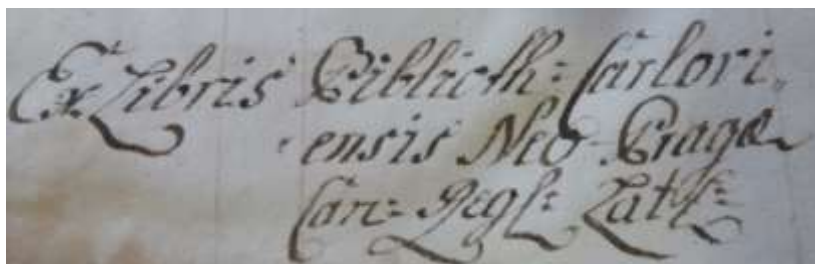 Ex Libris Biblioth: Carlovi,
ensis Neo-Pragæ
Can: Regl: Latl: